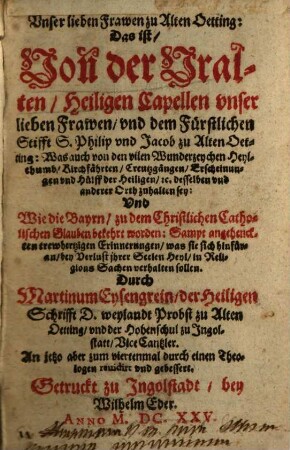 Vnser lieben Frawen zu Alten Oetting:
Das ist/
Von der Vral-
ten/ Heiligen Capellen vnser
lieben Frawen/ vnd dem Fürstlichen
Stifft S. Philip vnd Jacob zu Alten Oet-
ting: Was auch von den vilen Wunderzeychen Heyl-
thumb/ Kirchfährten/ Creutzgängen/ Erscheinun-
gen vnd Hülff der Heiligen/ ec. desselben vnd
anderer Orth zuhalten sey:
Vnd
Wie die Bayrn/ zu dem Christlichen Catho-
lischen Glauben bekehrt worden: Sampt angehenck-
ten trewhertzigen Erinnerungen/ was sie sich hinfür-
an/ bey Verlust jhrer Seelen Heyl/ in Reli-
gions Sachen verhalten sollen.
Durch
Martinum Eysengrein/ der Heiligen
Schrifft D. weylandt Probst zu Alten
Oetting/ vnd der Hohenschul zu Ingol-
statt/ Vice Cantzler.
An jetzo aber zum viertenmal durch einen Theo-
logen reuidirt vnd gebessert.
Getruckt zu Ingolstadt/ bey
Wilhelm Eder.
ANNO M. DC. XXV.